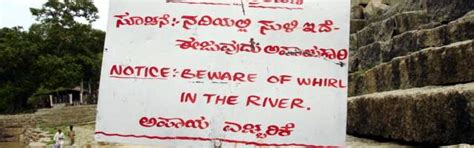 ಸೂಚನೆ:- ನದಿಯಲ್ಲಿ ಸುಳಿ ಇದೆ-
ಈಜುವುದು ಅಪಾಯಕಾರಿ
NOTICE:- BEWARE OF WHIRL
IN THE RIVER.
ಅಪಾಯ ಎಚ್ಚರಿಕೆ